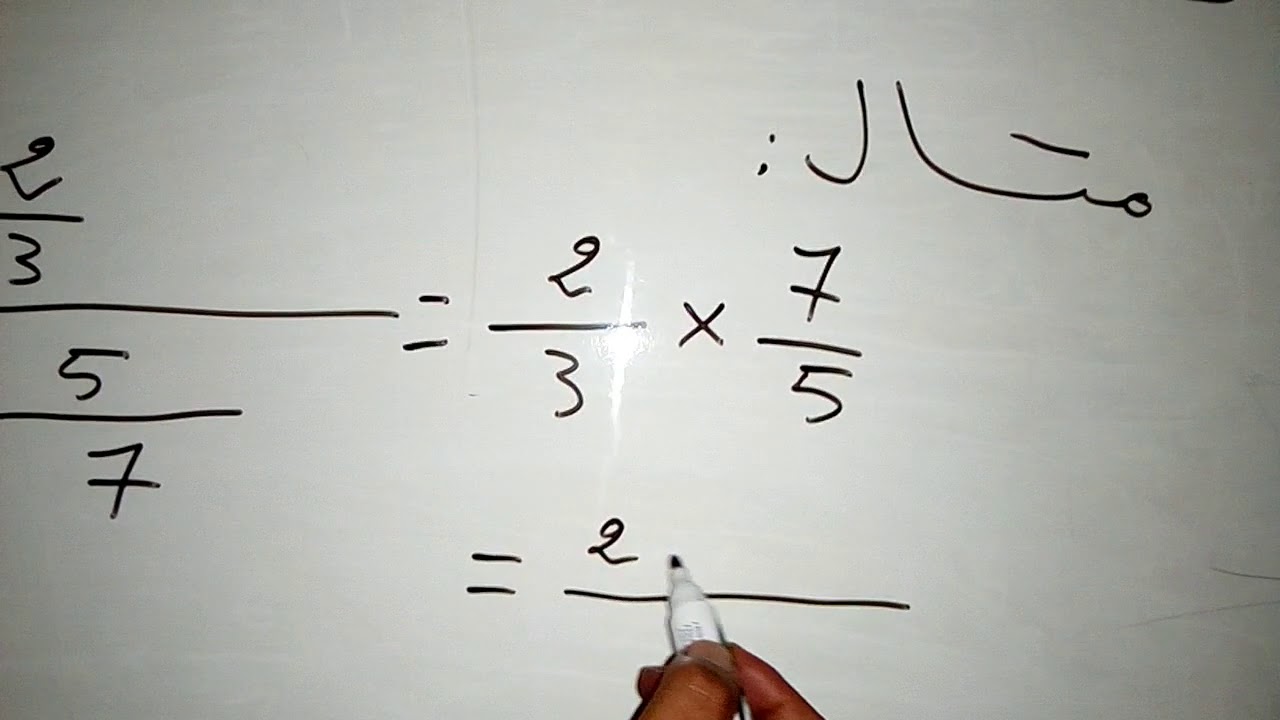 مثال :
2/3 / 5/7 = 2/3 × 7/5
= 2